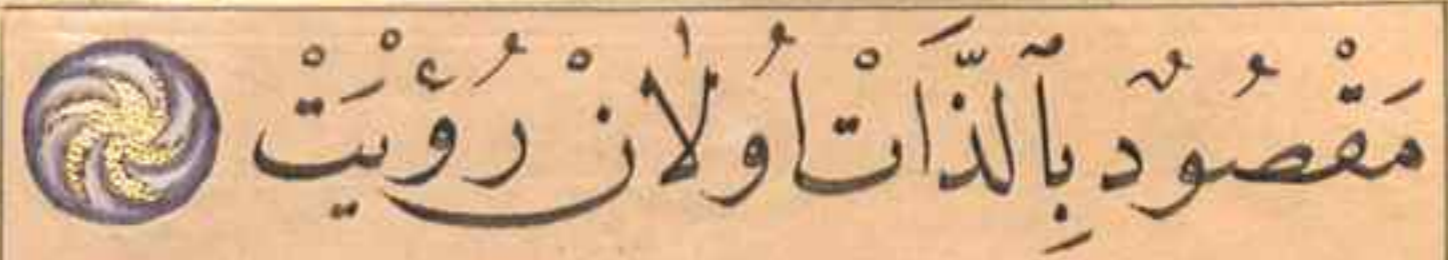 مَقْصُودٌ بِٱلذَّاتْ اُولَانْ رُؤْيَتْ